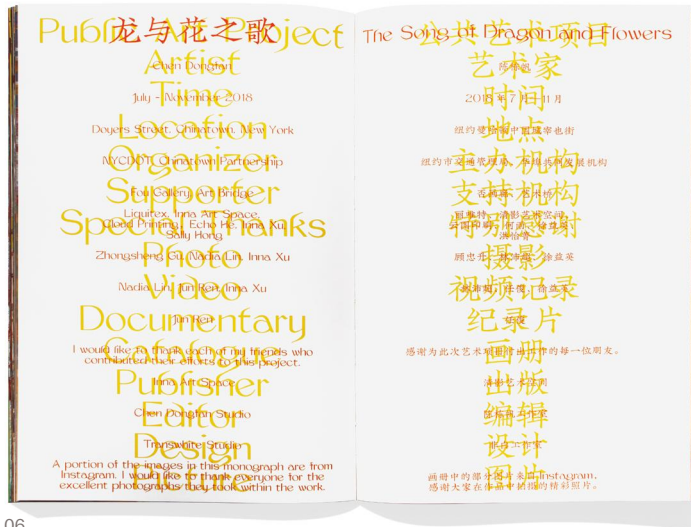 Public Art Project
龙与花之歌
Artist
Chen Dongfan
Time
July - November 2018
Location
Doyers Street, Chinatown, New York
Organizer
NYCDOT, Chinatown Partnership
Supporter
Fou Gallery, Art Bridge
Special Thanks
Liquitex, Inna Art Space,
Cloud Printing, Echo He, Inna Xu,
Sally Hong
Photo
Zhongsheng Gu, Nadia Lin, Inna Xu
Video
Nadia Lin, Jun Ren, Inna Xu
Documentary
Jun Ren
Catalog
I would like to thank each of my friends who
contributed their efforts to this project.
Publisher
Inna Art Space
Editor
Chen Dongfan Studio
Design
Transwhite Studio
Picture
A portion of the images in this monograph are from
Instagram. I would like to thank everyone for the
excellent photographs they took within the work.
公共艺术项目
The Song of Dragon and Flowers
艺术家
陈栋帆
时间
2018 年 7 月-11 月
地点
纽约曼哈顿中国城宰也街
主办机构
纽约市交通管理局, 华埠共同发展机构
支持机构
否画廊, 艺术桥
特别感谢
丽唯特, 清影艺术空间,
云图印刷, 何雨, 徐益英,
洪怡睿
摄影
顾忠升, 林沛超, 徐益英
视频记录
任俊, 徐益英
纪录片
任俊
画册
感谢为此次艺术项目付出工作的每一位朋友。
出版
清影艺术空间
编辑
陈栋帆工作室
设计
工作室
图片
画册中的部分图片来自 Instagram,
感谢大家在作品中拍摄的精彩照片。
06